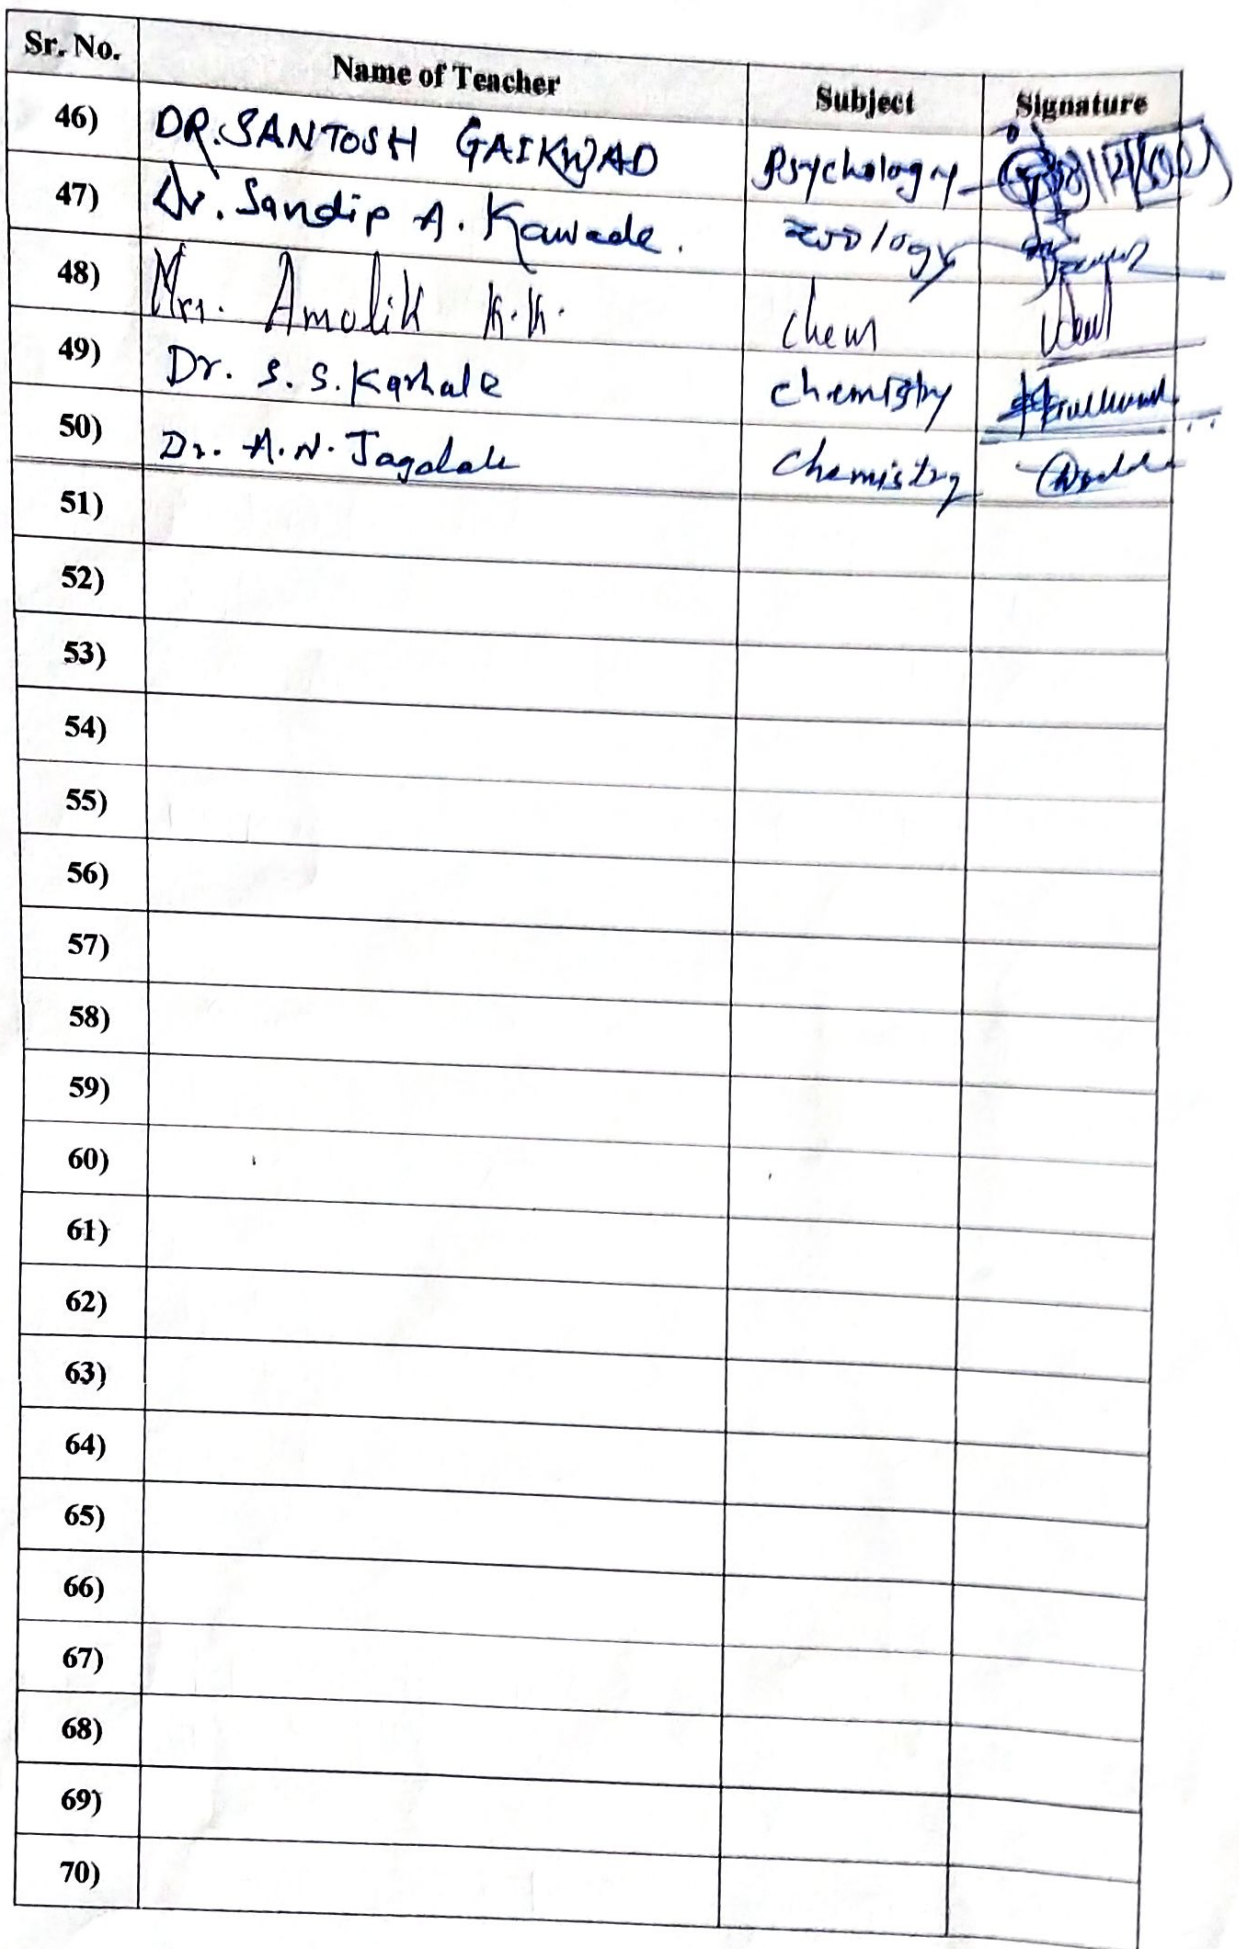 Sr. No. Name of Teacher Subject Signature
46) DR. SANTOSH GAIKWAD Psychology
47) Dr. Sandip A. Kawade. zoology
48) Mrs. Amolik K.K. Chem
49) Dr. S. S. Karhale chemistry
50) Dr. A. N. Jagdale Chemistry
51)
52)
53)
54)
55)
56)
57)
58)
59)
60)
61)
62)
63)
64)
65)
66)
67)
68)
69)
70)